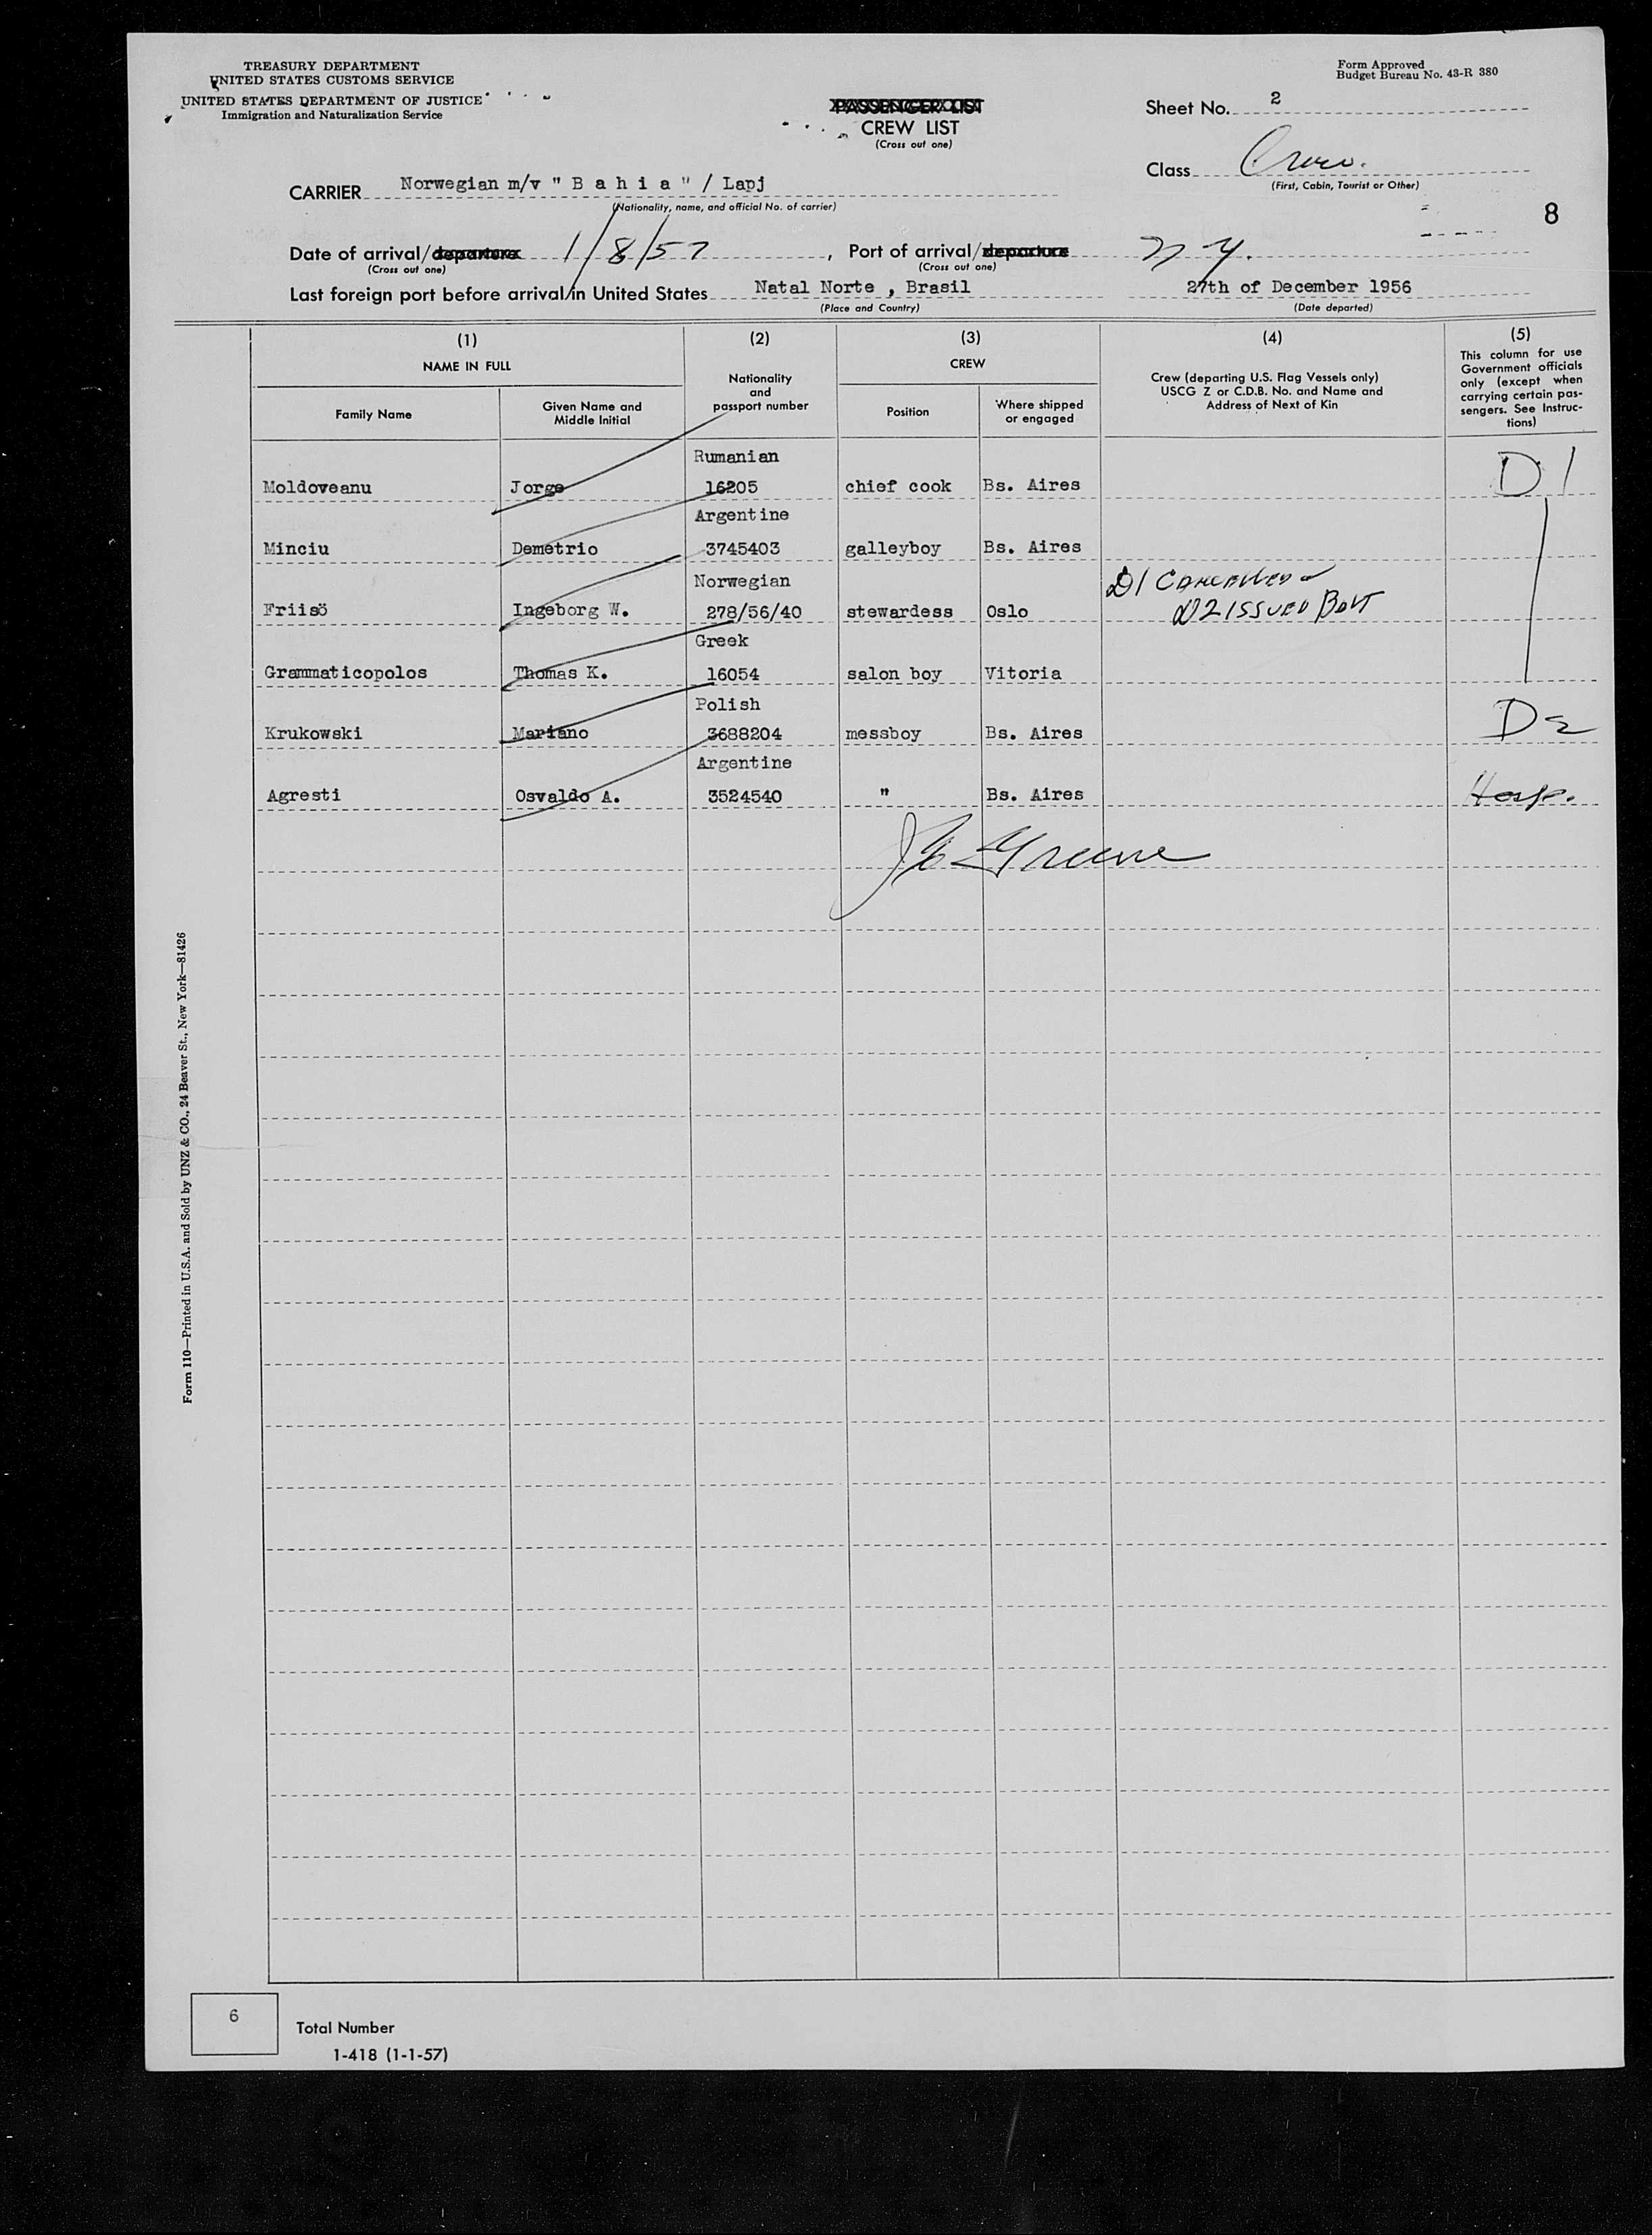 TREASURY DEPARTMENT
UNITED STATES CUSTOMS SERVICE
UNITED STATES DEPARTMENT OF JUSTICE
Immigration and Naturalization Service
Form Approved
Budget Bureau No. 43-R 380
PASSENGER LIST
CREW LIST
(Cross out one)
Sheet No. 2
Class Crew.
(First, Cabin, Tourist or Other)
CARRIER Norwegian m/v " B a h i a " / Lapj
(Nationality, name, and official No. of carrier)
8
Date of arrival/departure 1/8/57, Port of arrival/departure N.Y.
(Cross out one) (Cross out one)
Last foreign port before arrival in United States Natal Norte , Brasil 27th of December 1956
(Place and Country) (Date departed)
(1) (2) (3) (4) (5)
NAME IN FULL
Family Name
Given Name and
Middle Initial
Nationality
and
passport number
CREW
Position
Where shipped
or engaged
Crew (departing U.S. Flag Vessels only)
USCG Z or C.D.B. No. and Name and
Address of Next of Kin
This column for use
Government officials
only (except when
carrying certain pas-
sengers. See Instruc-
tions)
Rumanian
Moldoveanu Jorge 16205 chief cook Bs. Aires D1
Argentine
Minciu Demetrio 3745403 galleyboy Bs. Aires
Norwegian D1 CANCELLED
Friisö Ingeborg W. 278/56/40 stewardess Oslo D2 ISSUED
Greek
Grammaticopolos Thomas K. 16054 salon boy Vitoria
Polish
Krukowski Mariano 3688204 messboy Bs. Aires D2
Argentine
Agresti Osvaldo A. 3524540 " Bs. Aires Hosp.
Greene
Form 110—Printed in U.S.A. and Sold by UNZ & CO., 24 Beaver St., New York—81426
6
Total Number
1-418 (1-1-57)